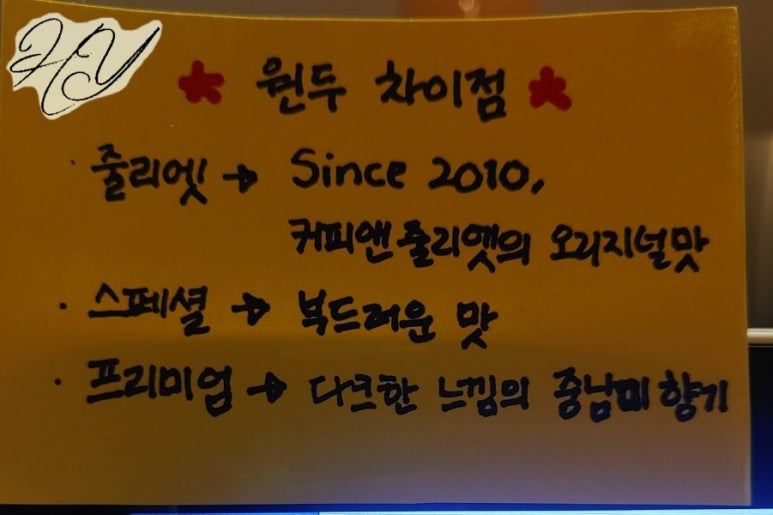 HY
* 원두 차이점 *
· 줄리엣 → Since 2010,
커피앤줄리엣의 오리지널맛
· 스페셜 → 부드러운 맛
· 프리미엄 → 다크한 느낌의 중남미 향기